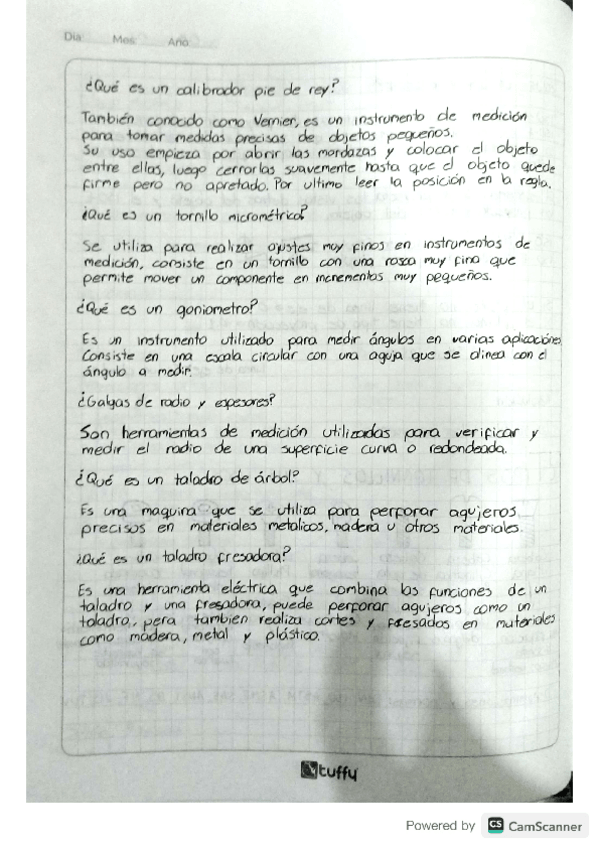 Dia Mes Año
¿Qué es un calibrador pie de rey?
También conocido como Vernier, es un instrumento de medición
para tomar medidas precisas de objetos pequeños.
Su uso empieza por abrir las mordazas y colocar el objeto
entre ellas, luego cerrarlas suavemente hasta que el objeto quede
firme pero no apretado. Por ultimo leer la posición en la regla.
¿Qué es un tornillo micrométrico?
Se utiliza para realizar ajustes muy finos en instrumentos de
medición, consiste en un tornillo con una rosca muy fina que
permite mover un componente en incrementos muy pequeños.
¿Qué es un goniometro?
Es un instrumento utilizado para medir ángulos en varias aplicaciones
Consiste en una escala circular con una aguja que se alinea con el
ángulo a medir.
¿Galgas de radio y espesores?
Son herramientas de medición utilizadas para verificar y
medir el radio de una superficie curva o redondeada.
¿Qué es un taladro de árbol?
Es una maquina que se utiliza para perforar agujeros
precisos en materiales metalicos, madera u otros materiales.
¿Qué es un taladro fresadora?
Es una herramienta eléctrica que combina las funciones de un
taladro y una fresadora, puede perforar agujeros como un
taladro, pera tambien realiza cortes y fresados en materiales
como madera, metal y plástico.
tuffy
Powered by CS CamScanner